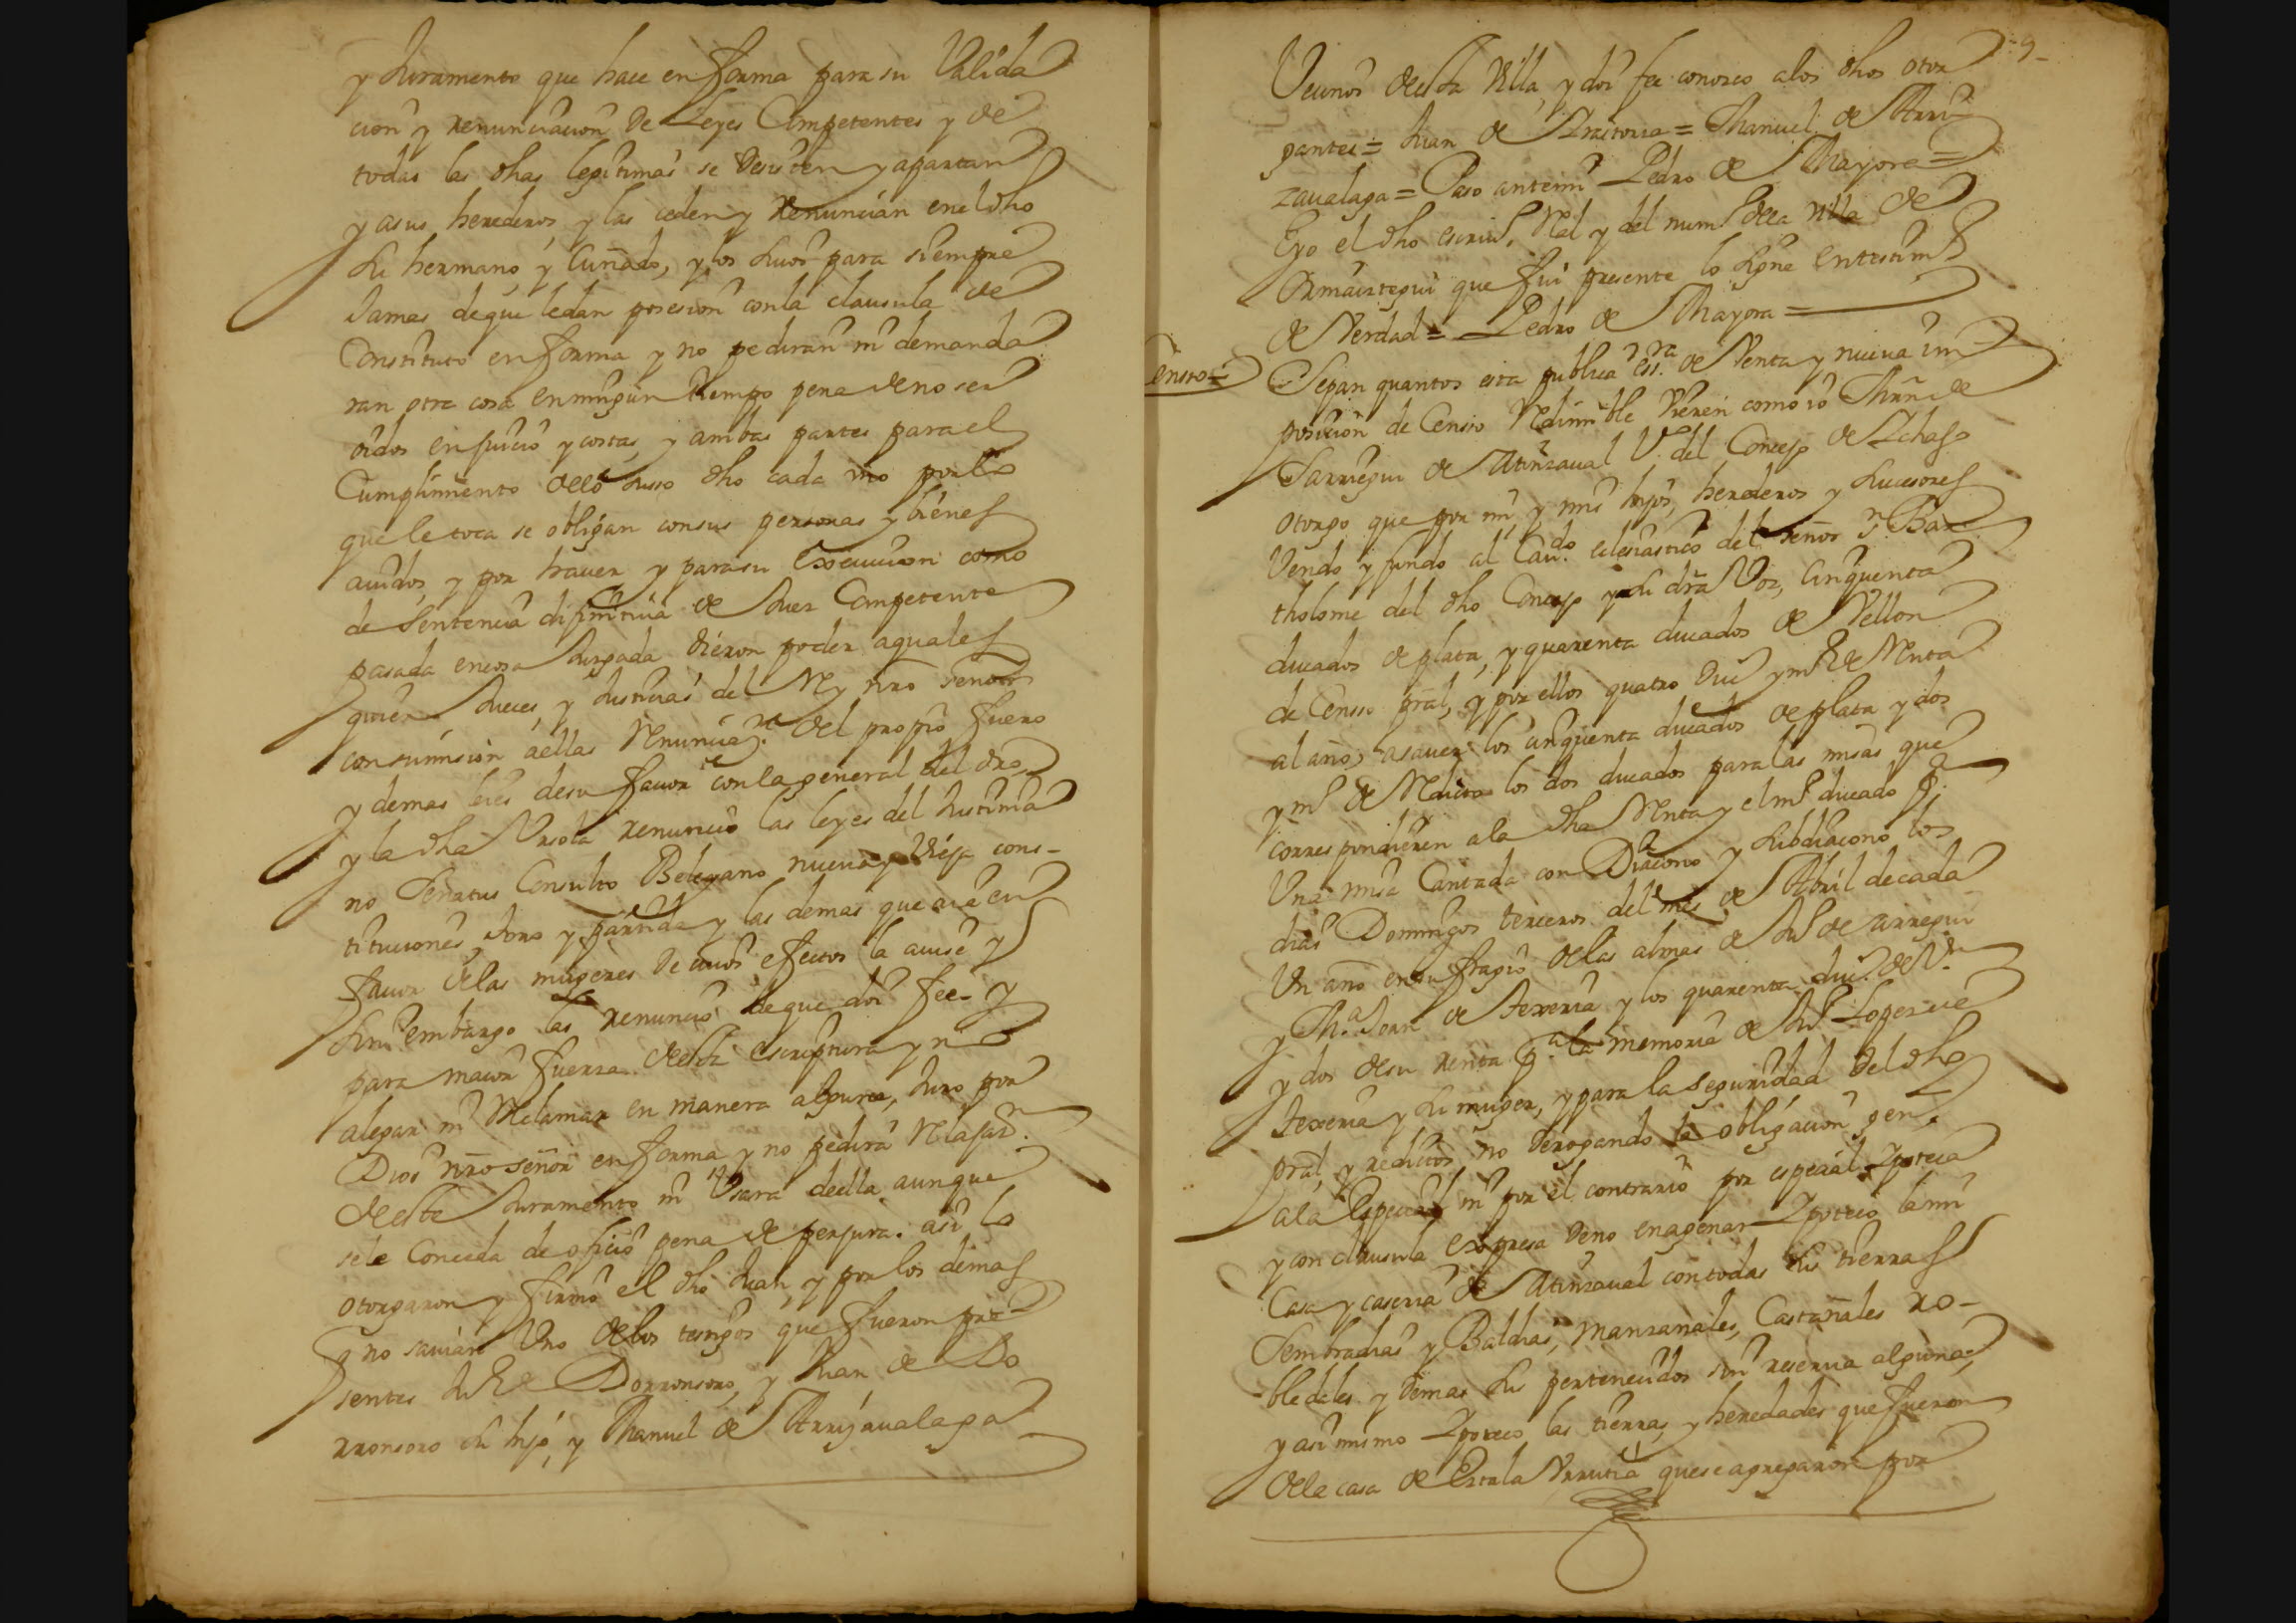 y Juramento que hace en forma para su Valida
cion y renunciacion de Leyes Competentes y de
todas las dhas legitimas se desisten y apartan
y asus herederos y las ceden y Renuncian en el dho
su hermano y Cuñado, y los suios para siempre
Jamas de que le dan posesion con la clausula de
Constituto en forma y no pediran ni demanda
ran otra cosa en ningun tiempo pena de no ser
oidos en juicio y costas, y ambas partes para el
Cumplimiento dello suso dho cada vno por lo
que le toca se obligan con sus personas y bienes
auidos, y por hauer y para su Execucion como
de Sentencia difinitiua de Juez Competente
pasada en cosa Juzgada dieron poder a quales
quier Jueces, y Justicias del Rey nro señor
con sumision a ellas Renuncia.on del propio fuero
y demas leies de su fauor con la general del dro,
y la dha Vrsola renuncio las leyes del Justinia
no Senatus Consulto Beleyano nueua y Vieja cons-
tituciones Toro y partida y las demas que ai en
fauor de las mugeres de cuios efectos la auise y
sin embargo las renuncio de que doi fee y
para maior fuerza desta escriptura y no
alegar ni Reclamar en manera alguna, Juro por
Dios nro señor en forma y no pedira Relajan.
deste Juramento ni Vsara della aunque
se le Conceda de oficio pena de perjura. asi lo
otorgaron y firmo el dho Juan, y por los demas
q no sauian Vno de los testigos que fueron pre-
sentes de Dorronsoro, y Juan de Do
rronsoro su hijo, y Manuel de Arrizaualaga
Vecinos desta Villa, y doi fee conozco a los dhos otor
gantes = Juan de Aristoria = Manuel de Arri-
zaualaga = Paso ante mi Pedro de Mayora =
E yo el dho escriu.o Real y del num.o dela Villa de
Ormaiztegui que fui presente lo signe En testim.o
de Verdad = Pedro de Mayora =
Censo =
Sepan quantos esta publica ess.ra de Venta y nueua im
posicion de Censo Redimible Vieren como io Mrn de
Sarriegui de Atinzaual V.o del Concejo de Lchaso
otorgo que por mi, y mis hijos, herederos y sucesores
Vendo y fundo al Cau.do eclesiastico del señor Sn Bar
tholome del dho Concejo y su dra Voz, Cinquenta
ducados de plata, y quarenta ducados de Vellon
de Censo pral, y por ellos quatro Duc y m.o de Renta
al año, a sauer los cinquenta ducados de plata y dos
y m.o de Reditos los dos ducados para las misas que
correspondieren a la dha Renta y el m.o ducado p.a
Vna misa Cantada con Diacono y subdiacono los
dias Domingos terceros del mes de Abril de cada
Vn año en sufragio de las almas de de Sarriegui
y M.a Joan de Yerreria y los quarenta duc.s de V.on
y dos de su renta p.a la memoria de Lopez de
Yerreria y su muger, y para la seguridad del dho
pral, y reditos no derogando la obligacion gen.l
a la Especial ni por el contrario por especial Ypoteca
y con clausula expresa de no enagenar Ypoteco la mi
Casa y caseria de Atinzaual con todas sus tierras
Sembradias y Baldias, Manzanales, Castañales ro-
bledales y demas sus pertenecidos sin reserua alguna,
y asi mismo Ypoteco las tierras, y heredades que fueron
de la casa de Estala Vrrutia que se agregaron por